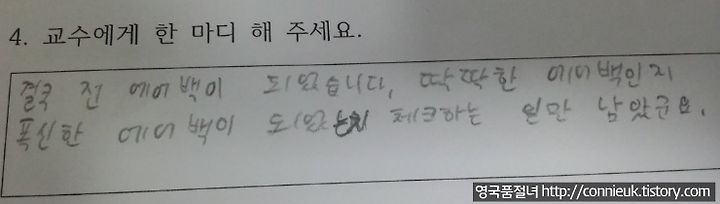 4. 교수에게 한 마디 해 주세요.
결국 전 에어백이 되었습니다, 딱딱한 에어백인지
푹신한 에어백이 되었는지 체크하는 일만 남았군요.
영국품절녀 http://connieuk.tistory.com